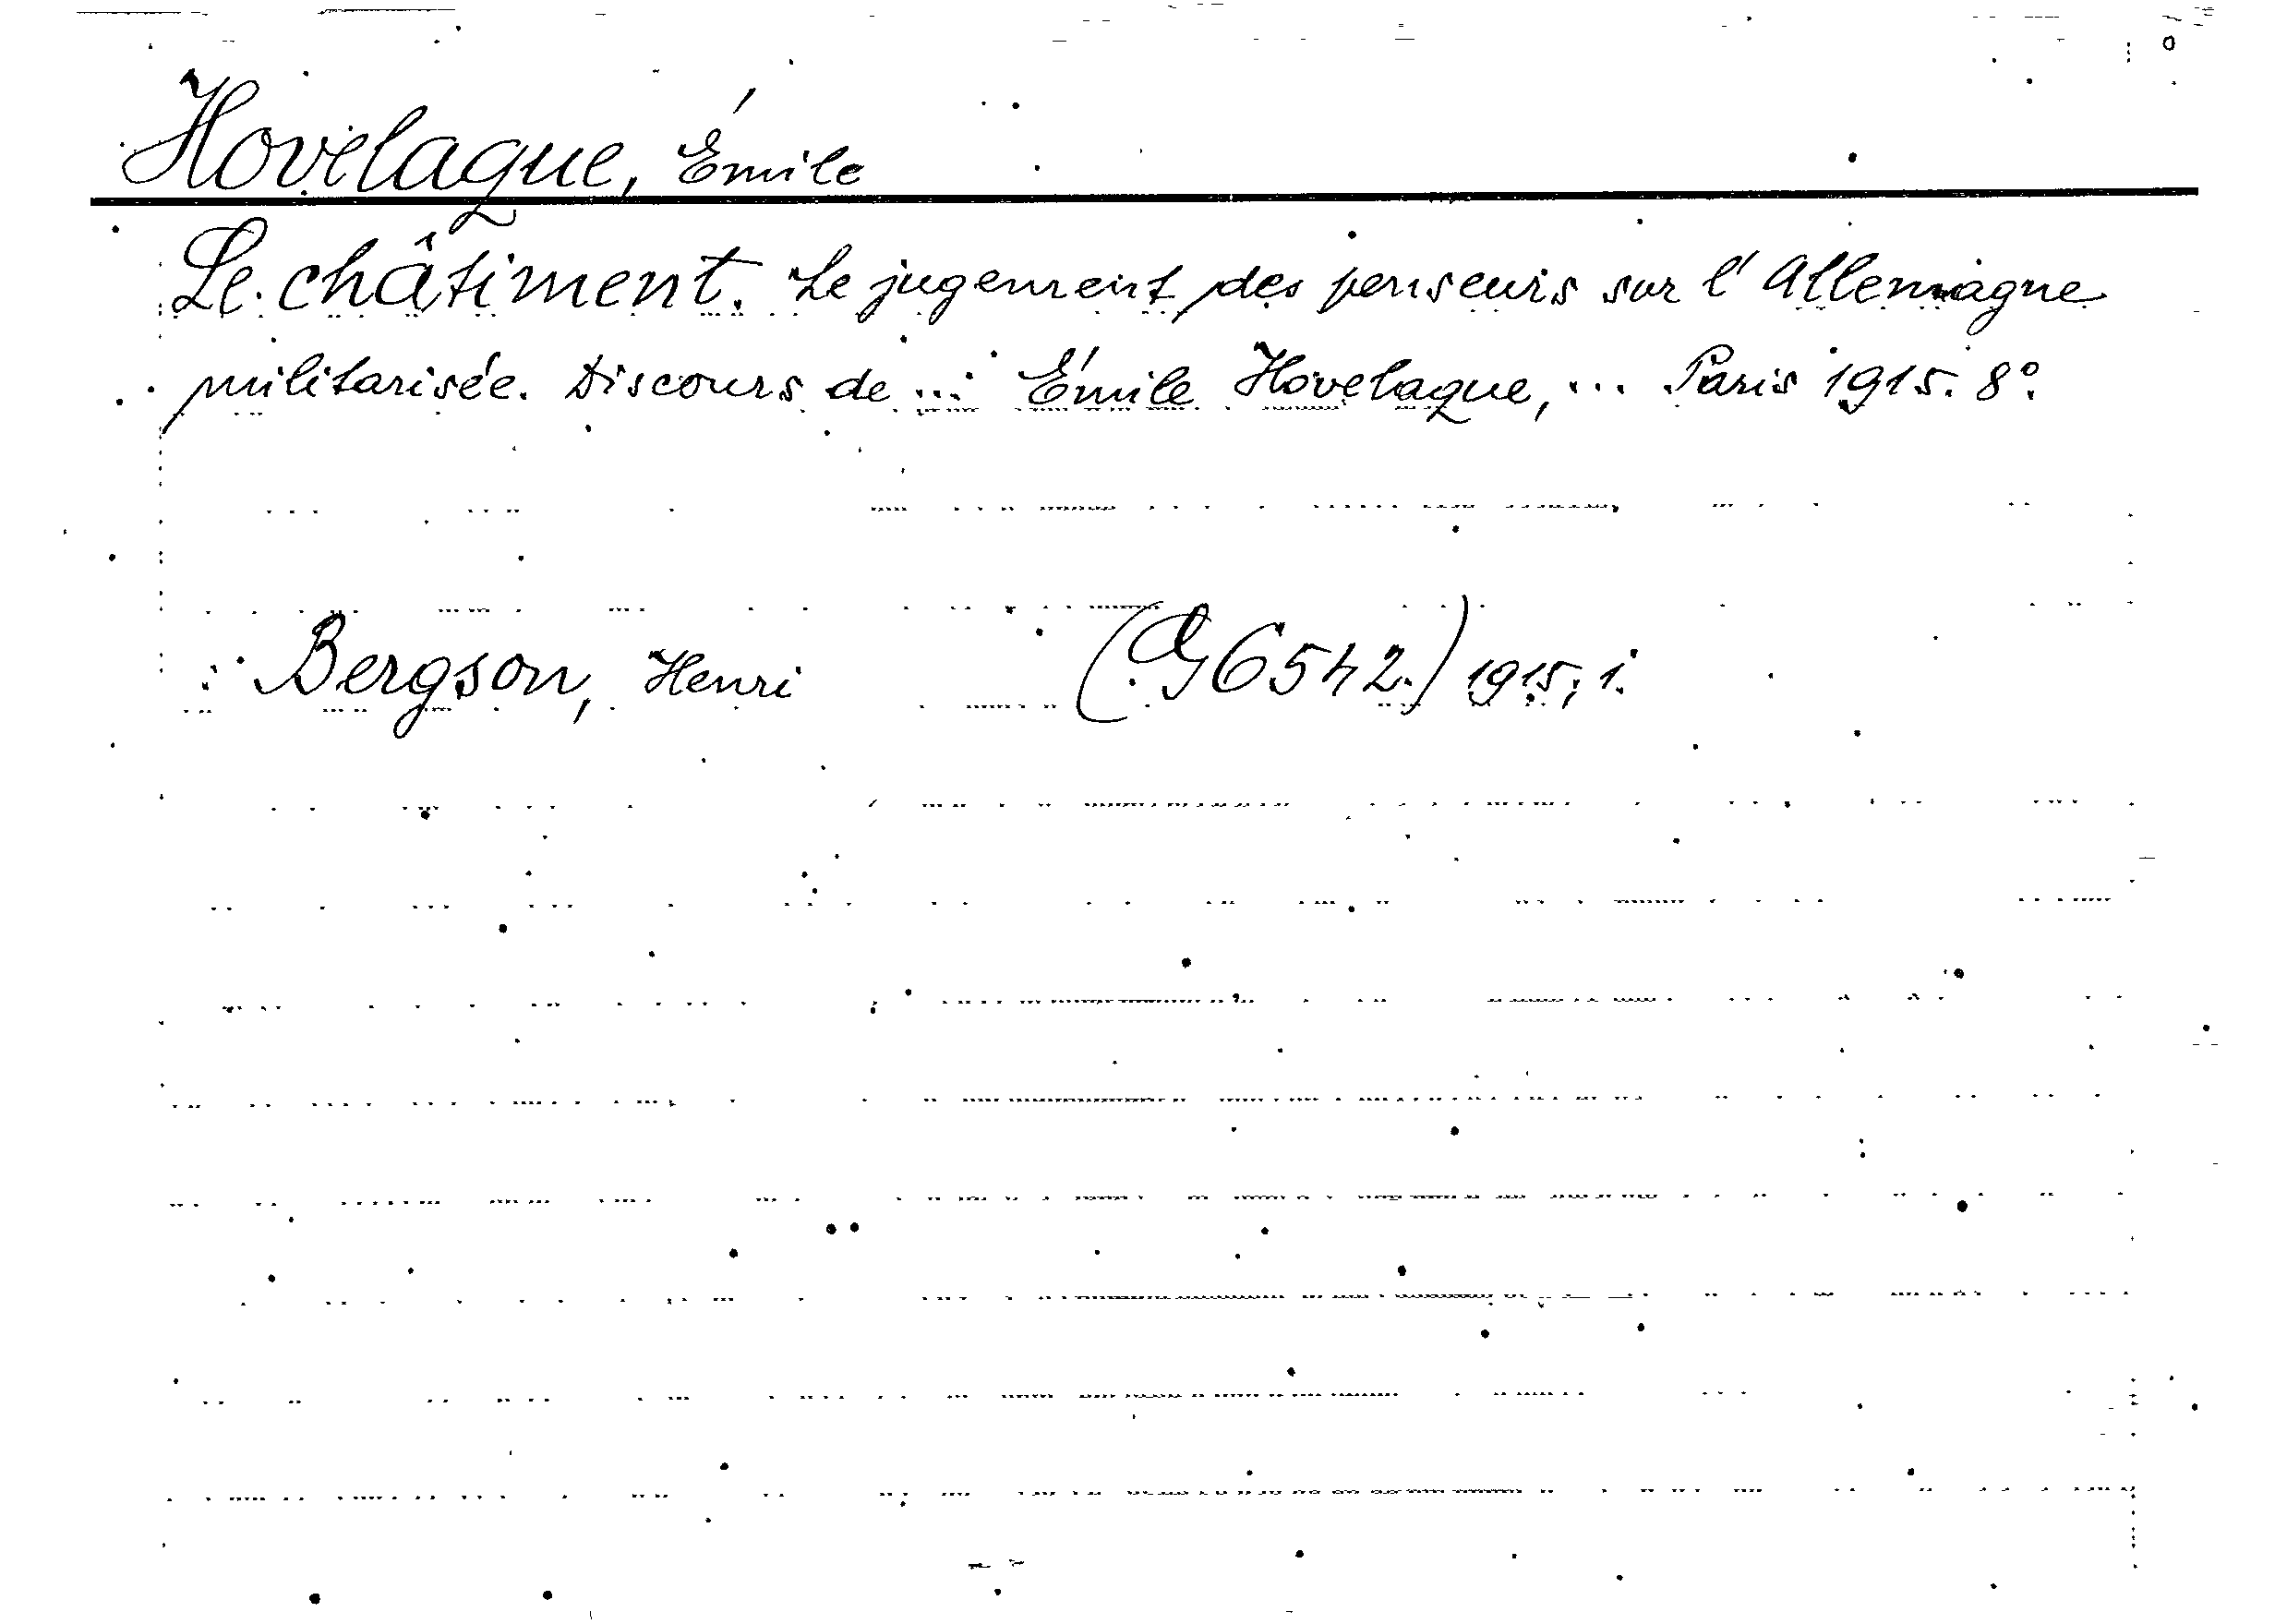 Hovelaque, Émile
Le châtiment. Le jugement des penseurs sur l'Allemagne
militarisée. Discours de ... Émile Hovelaque, ... Paris 1915. 8º.
Bergson, Henri (G 6542.) 1915; 1.